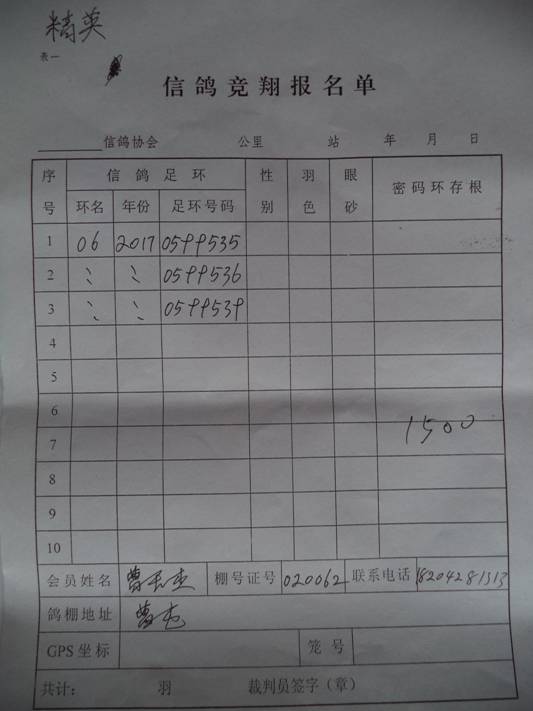 精英
表一
信鸽竞翔报名单
信鸽协会 公里 站 年 月 日
序号 信鸽足环 性别 羽色 眼砂 密码环存根
环名 年份 足环号码
1 06 2017 0599535
2 〃 〃 0599536
3 〃 〃 0599539
4
5
6
1500
7
8
9
10
会员姓名 棚号证号 020062 联系电话 18204281313
鸽棚地址 曹屯
GPS坐标 笼号
共计： 羽 裁判员签字（章）